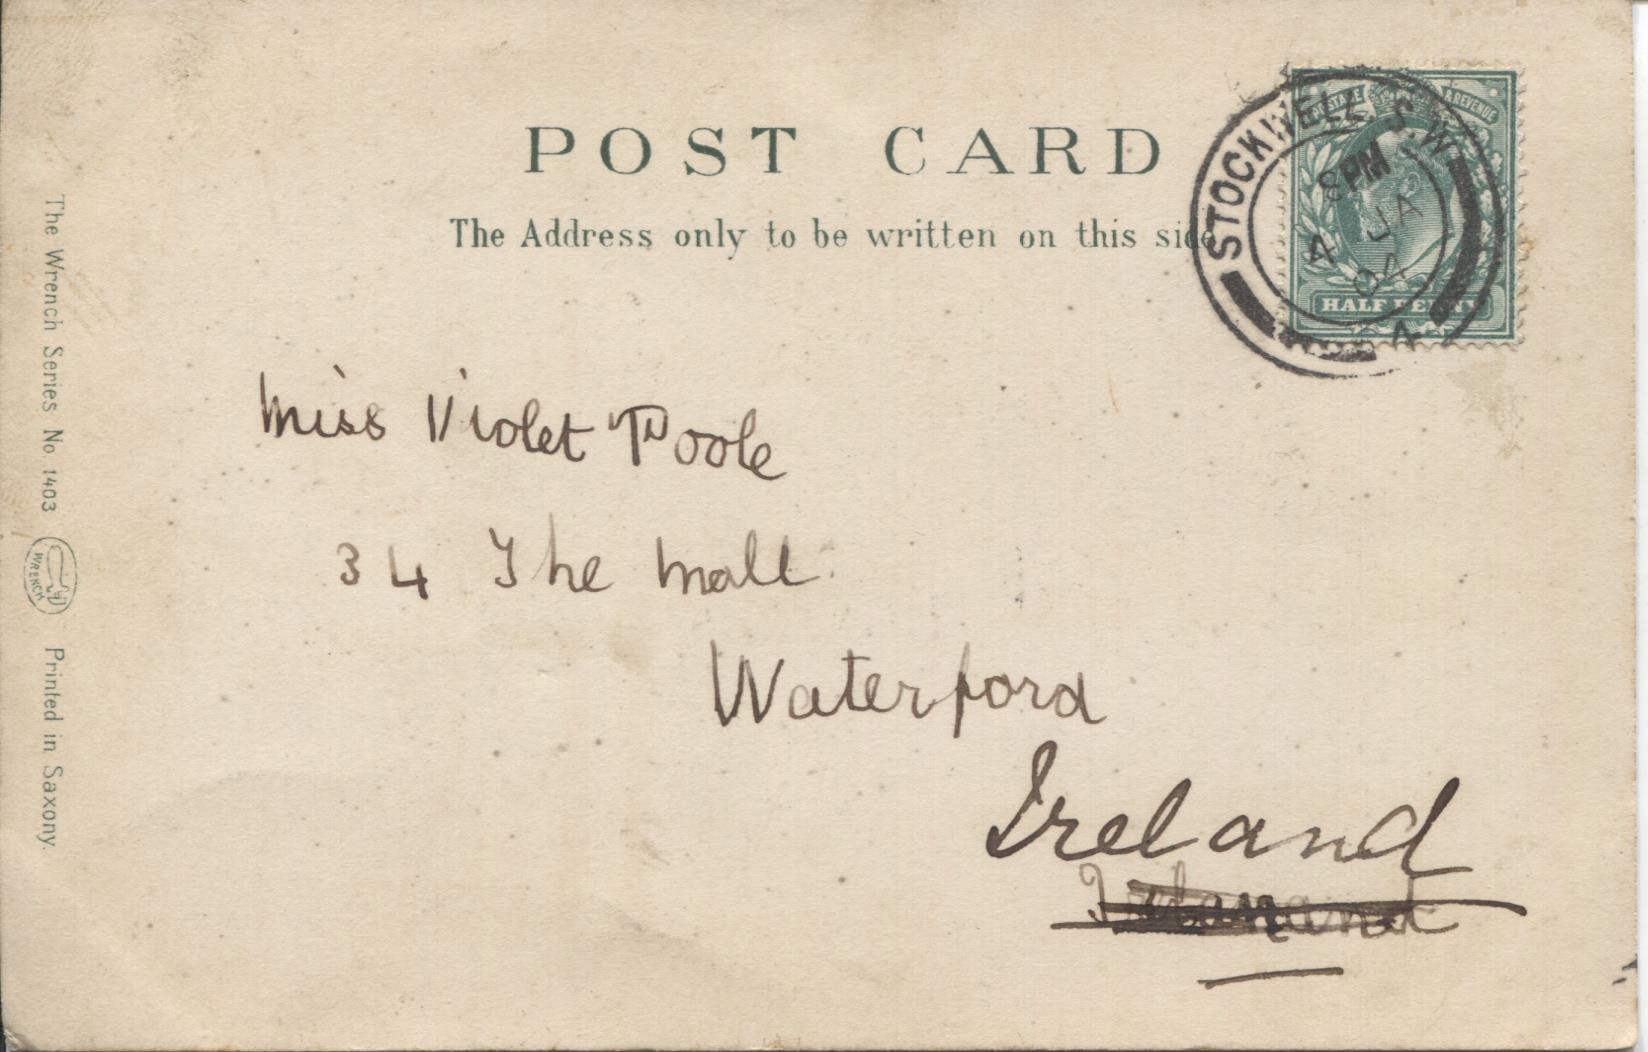 POST CARD
The Address only to be written on this side
POSTAGE & REVENUE
HALF PENNY
STOCKWELL S.W
8 PM
4 JA
04
4
Miss Violet Poole
34 The Mall
Waterford
Ireland
The Wrench Series No 1403 WRENCH Printed in Saxony.